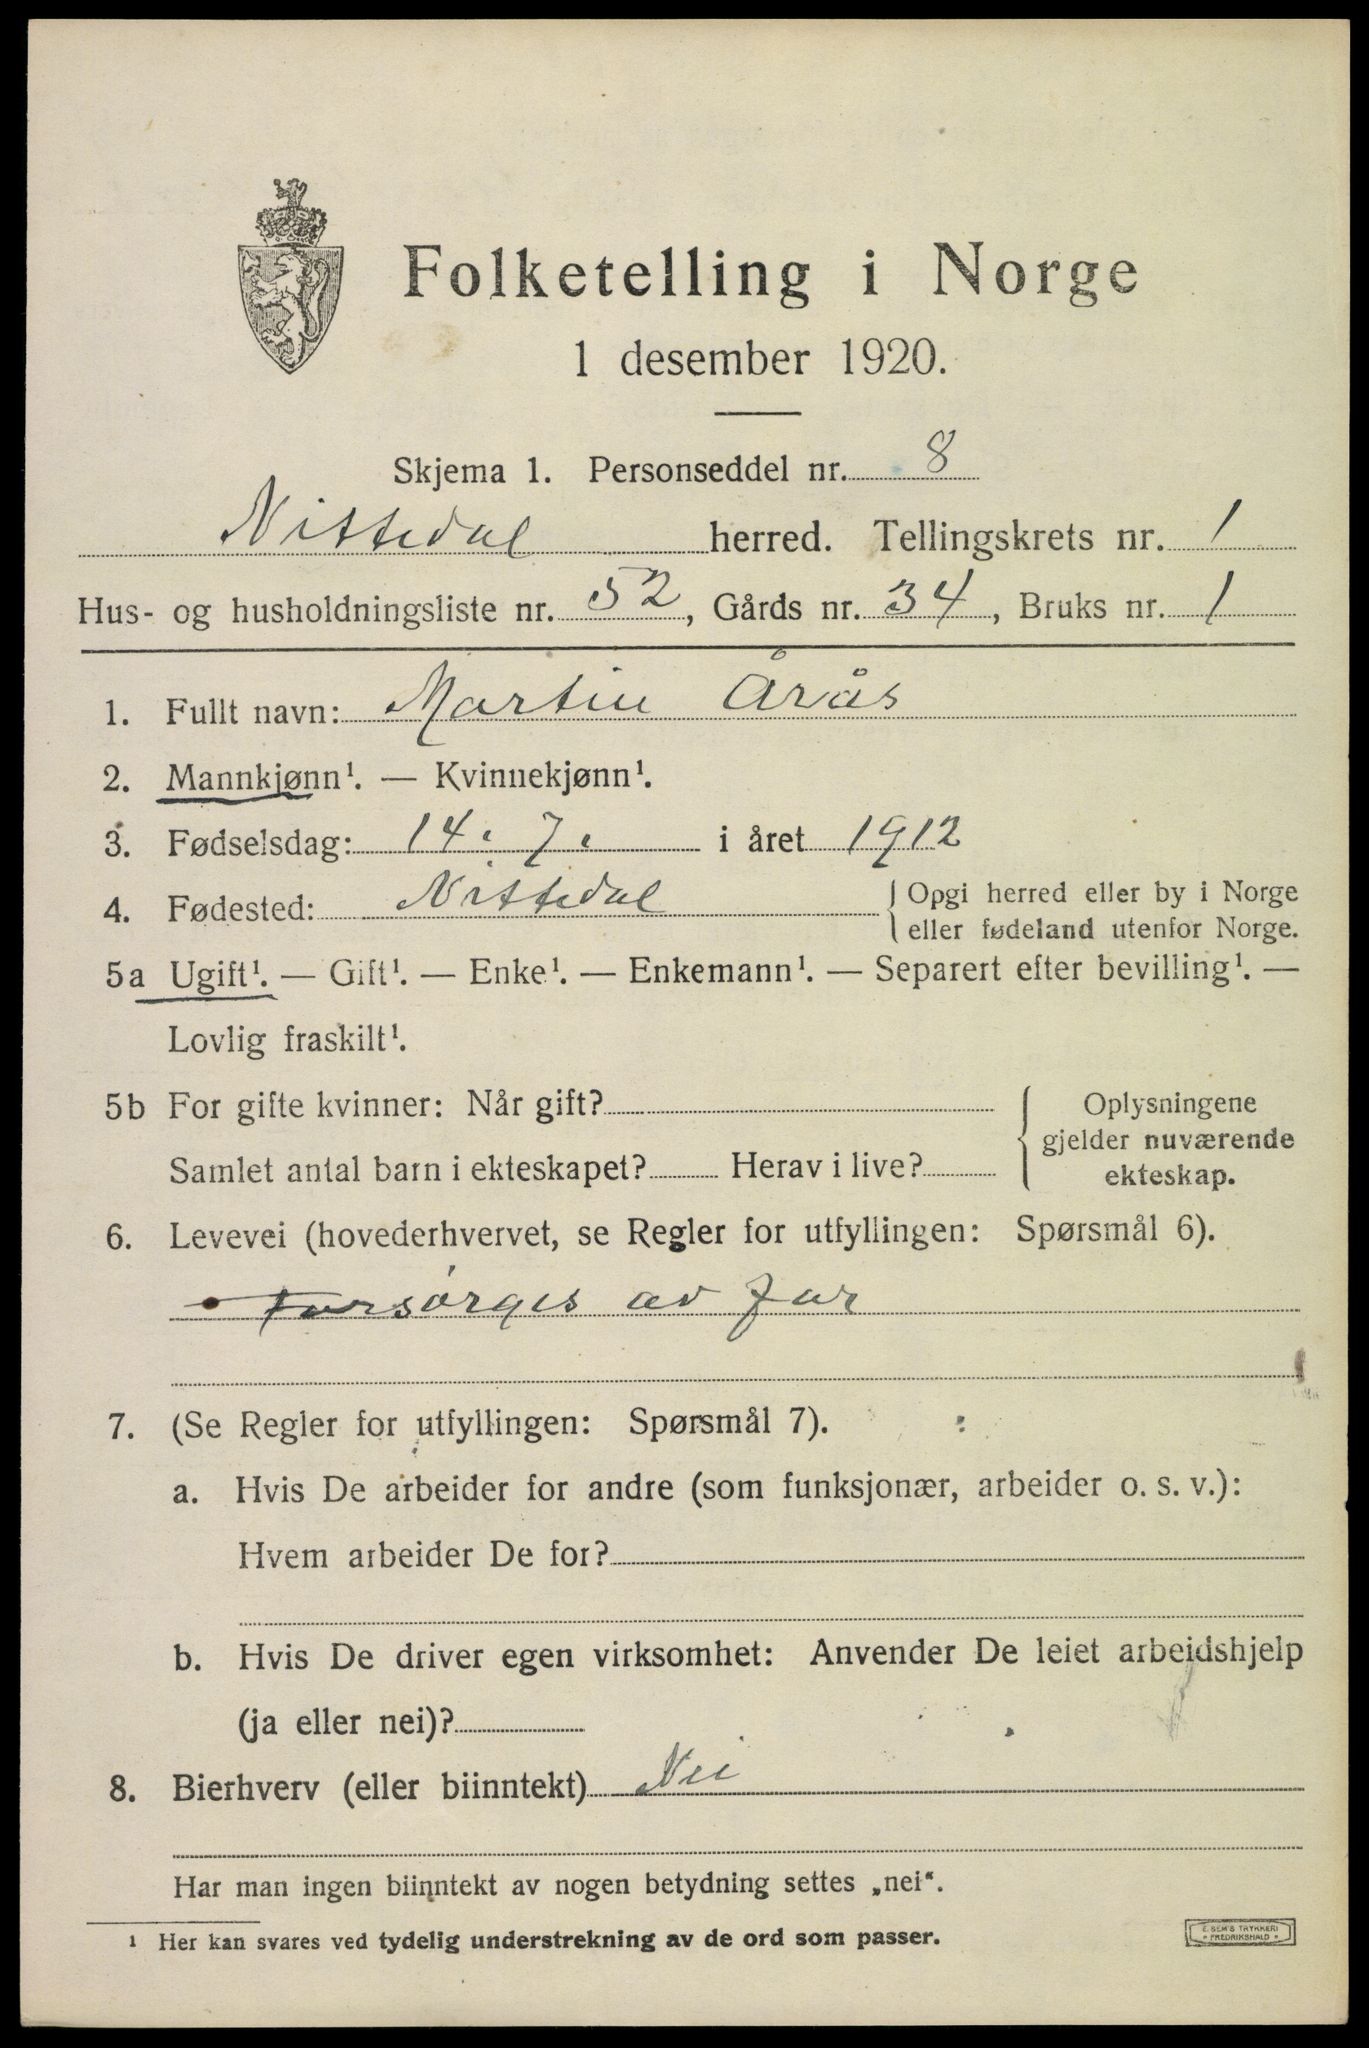 Folketelling i Norge
1 desember 1920.
Skjema 1. Personseddel nr. 8
Nittedal herred. Tellingskrets nr. 1
Hus- og husholdningsliste nr. 52, Gårds nr. 34, Bruks nr. 1
1. Fullt navn: Martin Årås
2. Mannkjønn¹. — Kvinnekjønn¹.
3. Fødselsdag: 14. 7. i året 1912
4. Fødested: Nittedal { Opgi herred eller by i Norge
eller fødeland utenfor Norge.
5a Ugift¹. — Gift¹. — Enke¹. — Enkemann¹. — Separert efter bevilling¹. —
Lovlig fraskilt¹.
5b For gifte kvinner: Når gift?
Samlet antal barn i ekteskapet? Herav i live?
Oplysningene
gjelder nuværende
ekteskap.
6. Levevei (hovederhvervet, se Regler for utfyllingen: Spørsmål 6).
Forsørges av far
7. (Se Regler for utfyllingen: Spørsmål 7).
a. Hvis De arbeider for andre (som funksjonær, arbeider o. s. v.):
Hvem arbeider De for?
b. Hvis De driver egen virksomhet: Anvender De leiet arbeidshjelp
(ja eller nei)?
8. Bierhverv (eller biinntekt) Nei
Har man ingen biinntekt av nogen betydning settes „nei“.
¹ Her kan svares ved tydelig understrekning av de ord som passer.
E. SEM'S TRYKKERI
FREDRIKSHALD